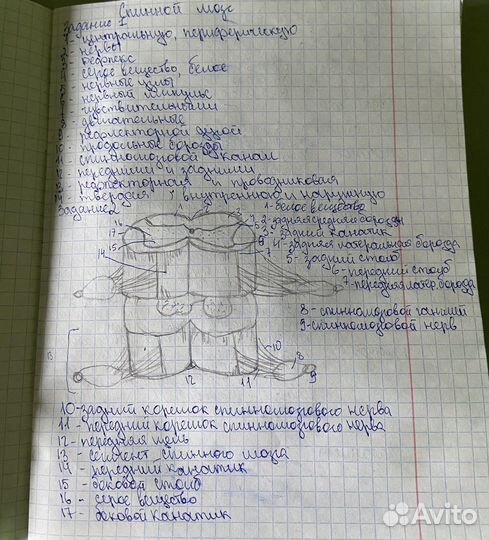 Спинной мозг
Задание 1
1 - центральную, периферическую
2 - нервы
3 - рефлекс
4 - серое вещество, белое
5 - нервные узлы
6 - нервный импульс
7 - чувствительными
8 - двигательные
9 - рефлекторной дугой
10 - продольные борозды
11 - спинномозговой канал
12 - передними и задними
13 - рефлекторная и проводниковая
14 - твердая, внутреннюю и наружную
Задание 2
1 - белое вещество
2 - задняя средняя борозда
3 - задний канатик
4 - задняя латеральная борозда
5 - задний столб
6 - передний столб
7 - передняя латер. борозда
8 - спинномозговой ганглий
9 - спинномозговой нерв
17
15
14
9
7
10
8
9
13
12
11
10 - задний корешок спинномозгового нерва
11 - передний корешок спинномозгового нерва
12 - передняя щель
13 - сегмент спинного мозга
14 - передний канатик
15 - боковой столб
16 - серое вещество
17 - боковой канатик
Avito